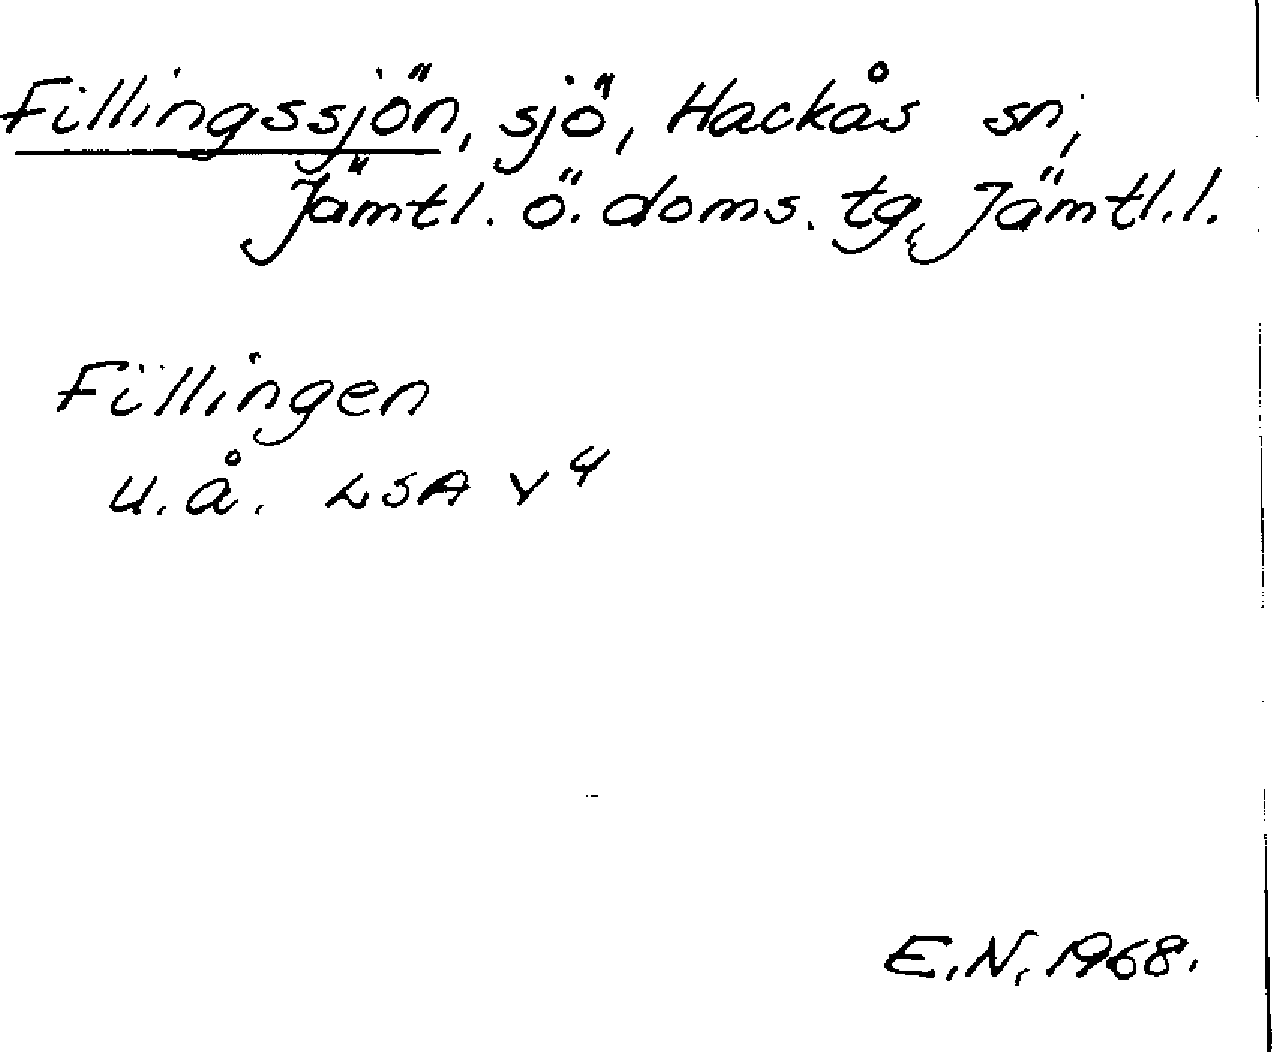 Fillingssjön, sjö, Hackås sn,
Jämtl. ö. doms. tg, Jämtl.l.
Fillingen
u.å. LSA v 4
E.N. 1968.